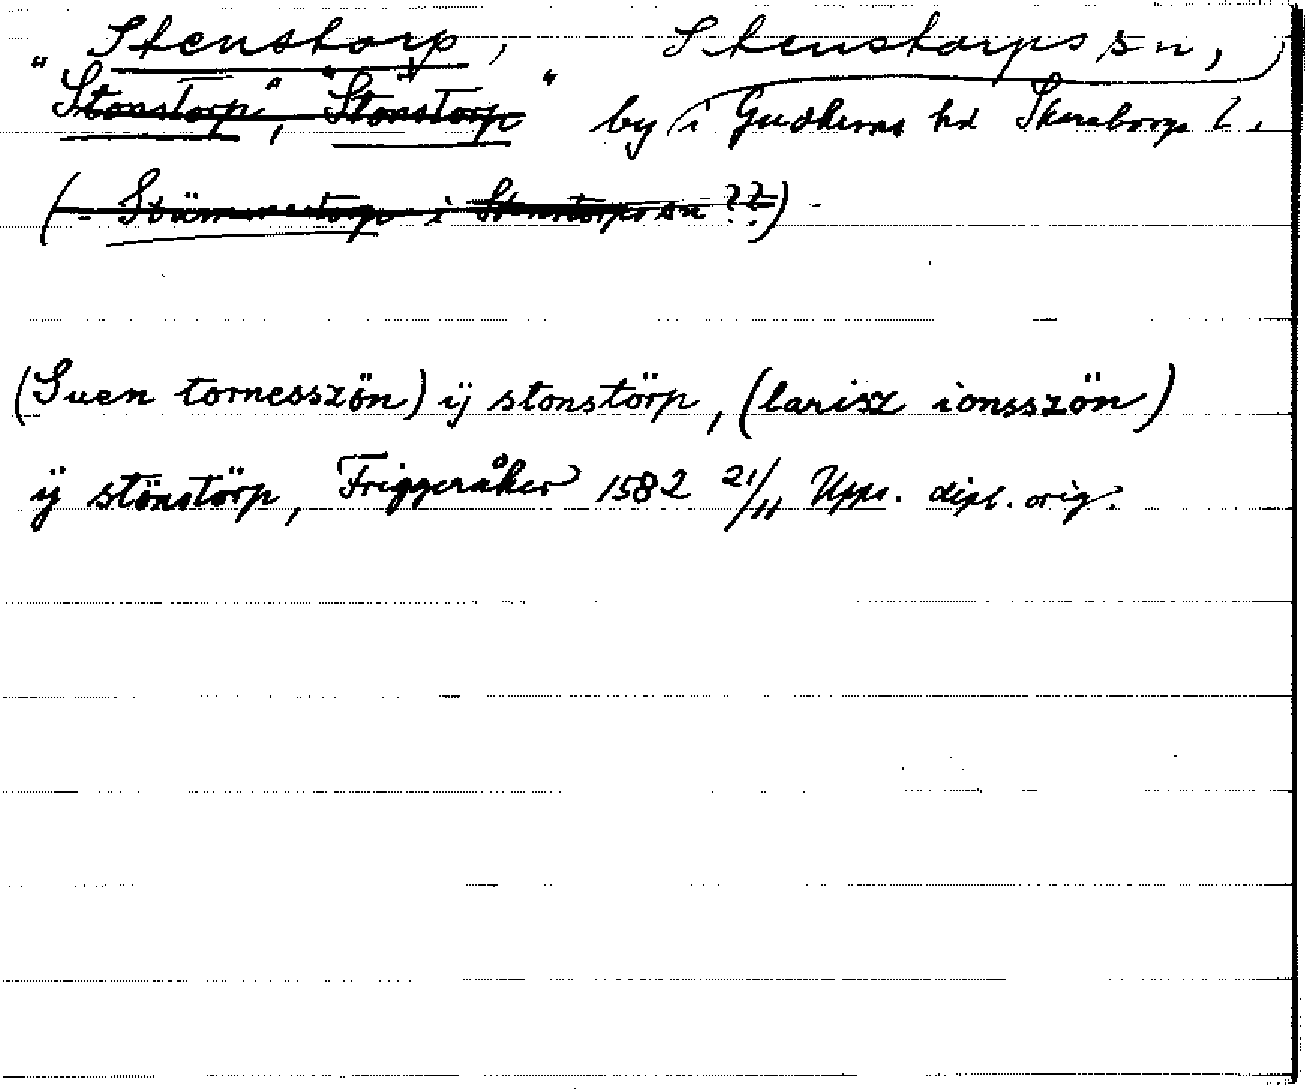 Stenstorp, Stenstorps sn,
"Stonstorp", "Stönstorp" by i Gudhems hd Skaraborgs l.
(= Stämmestorp i Stenstorps sn ??)
(Suen tornesszön) ÿ stonstörp, (larisz ionsszön)
ÿ stönstörp, Friggeråker 1582 21/11 Upps. dipl. orig.